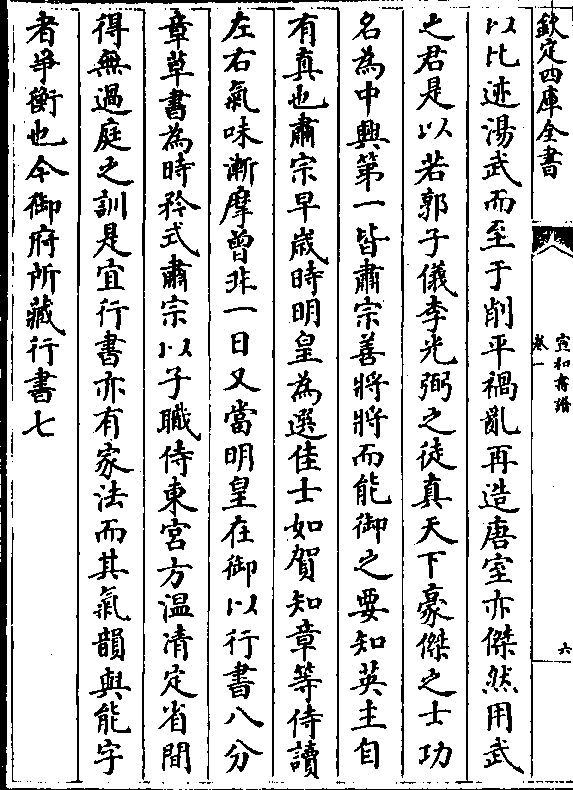 欽定四庫全書
宣和書譜
卷一
六
以比迹湯武而至于削平禍亂再造唐室亦傑然用武
之君是以若郭子儀李光弼之徒真天下豪傑之士功
名為中興第一皆肅宗善將將而能御之要知英主自
有真也肅宗早歳時明皇為選佳士如賀知章等侍讀
左右氣味漸摩曾非一日又當明皇在御以行書八分
章草書為時矜式肅宗以子職侍東宮方温凊定省間
得無過庭之訓是宜行書亦有家法而其氣韻與能字
者爭衡也今御府所藏行書七